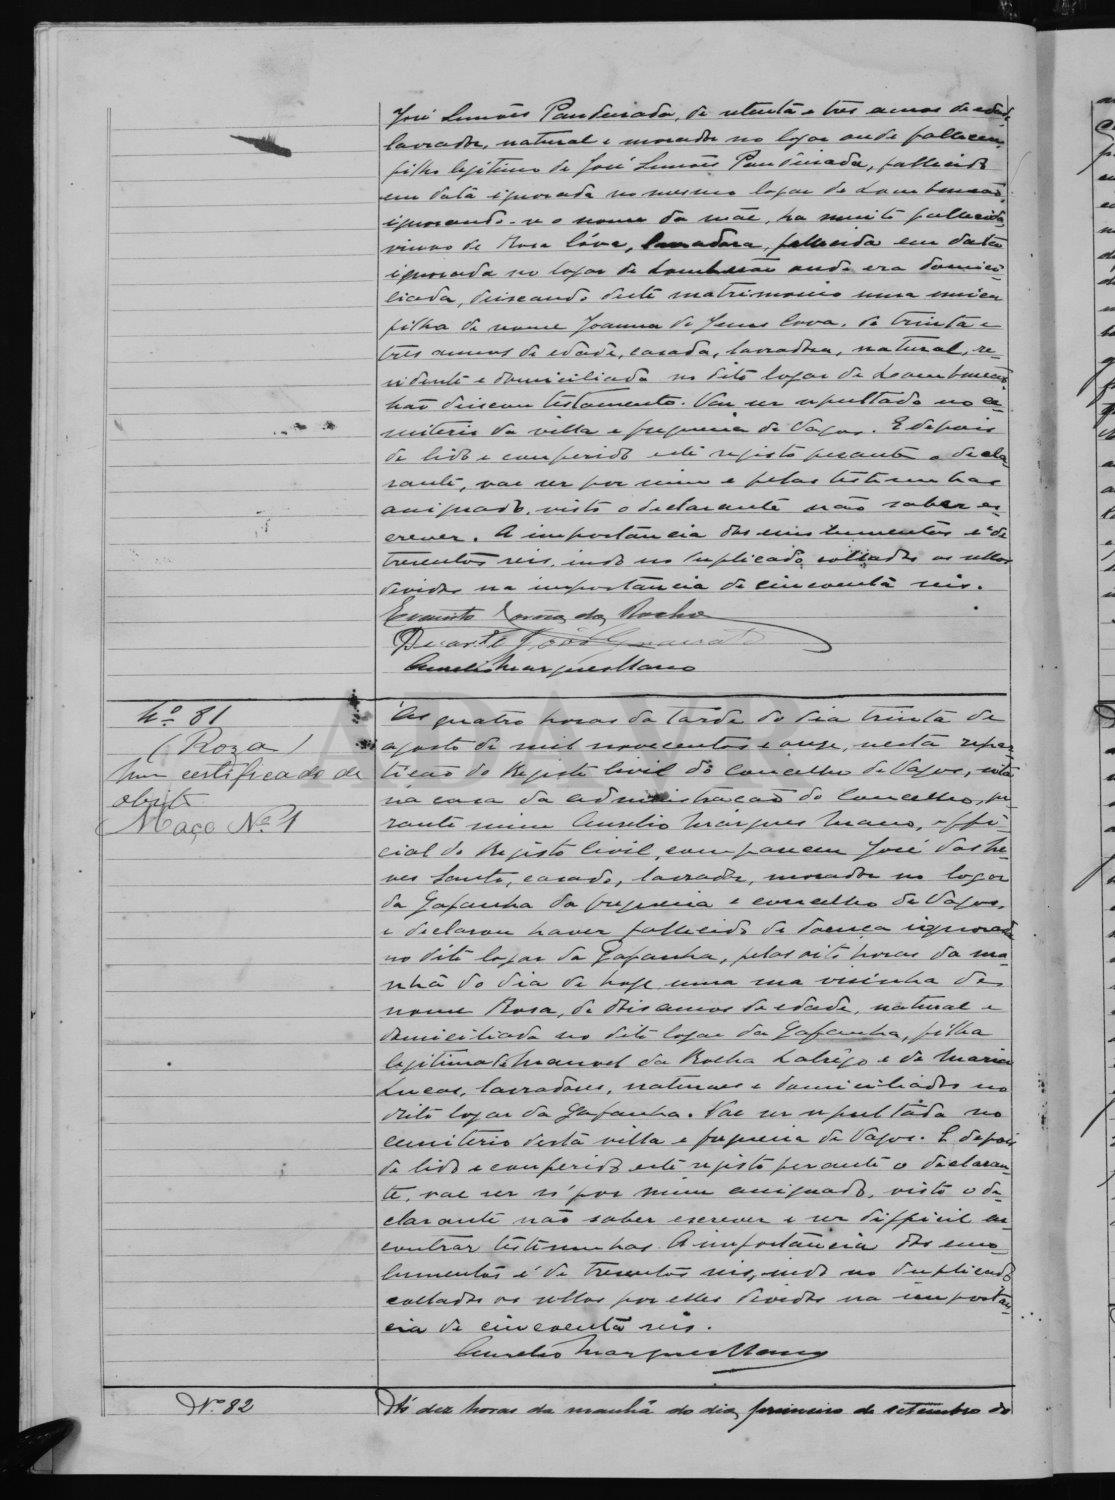 José Simões Pandeirada, de setenta e tres annos de edade,
lavrador, natural e morador no logar onde falleceu,
filho legitimo de José Simões Pandeirada, fallecido
em data ignorada no mesmo logar de Lombomeão,
ignorando-se o nome da mãe, ha muito fallecida,
viuvo de Rosa Cóva, lavradora, fallecida em data
ignorada no logar de Lombomeão onde era domici-
liada, deixando deste matrimonio uma unica
filha de nome Joanna de Jesus Cova, de trinta e
tres annos de edade, casada, lavradora, natural, re-
sidente e domiciliada no dito logar de Lombomeão.
Não deixou testamento. Vae ser sepultado no ce-
miterio da villa e freguezia de Vagos. E depois
de lido e conferido este registo perante o decla-
rante, vae ser por mim e pelas testemunhas
assignado, visto o declarante não saber es-
crever. A importancia dos emolumentos é de
trezentos reis, indo no duplicado collados os sellos
devidos na importancia de cincoenta reis.
da Rocha
Duarte José
Aurelio Marques Mano
Nº 81
(Roza)
Um certificado de
obito
Maço Nº 1
Ás quatro horas da tarde do dia trinta de
agosto de mil novecentos e onze, nesta repar-
tição do Registo Civil do Concelho de Vagos, sita
na casa da administração do Concelho, pe-
rante mim Aurelio Marques Mano, offi-
cial do Registo Civil, compareceu José das Ne-
ves Santo, casado, lavrador, morador no logar
da Gafanha da freguezia e concelho de Vagos,
e declarou haver fallecido de doença ignorada
no dito logar da Gafanha, pelas oito horas da ma-
nhã do dia de hoje uma sua visinha de
nome Rosa, de dois annos de edade, natural e
domiciliada no dito logar da Gafanha, filha
legitima de Manoel da Rocha Labrêgo e de Maria
Lucas, lavradores, naturaes e domiciliados no
dito logar da Gafanha. Vae ser sepultada no
cemiterio desta villa e freguezia de Vagos. E depois
de lido e conferido este registo perante o declaran-
te, vae ser só por mim assignado, visto o de-
clarante não saber escrever e ser difficil en-
contrar testemunhas. A importancia dos emo-
lumentos é de trezentos reis, indo no duplicado
collados os sellos por elles devidos na importan-
cia de cincoenta reis.
Aurelio Marques Mano
Nº 82
Ás dez horas da manhã do dia primeiro de setembro de
ADAVR